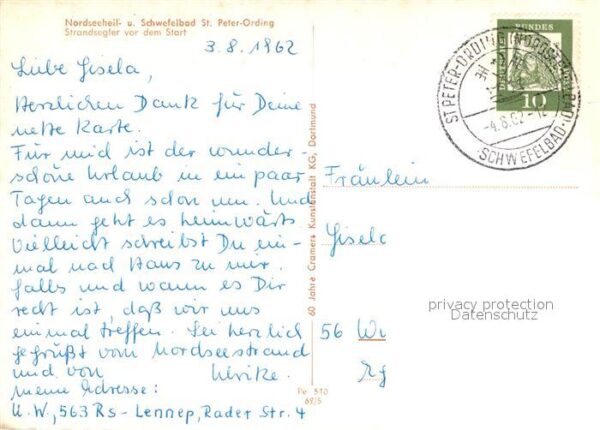 Nordseeheil- u. Schwefelbad St. Peter-Ording
Strandsegler vor dem Start
3.8.1962
Liebe Gisela,
Herzlichen Dank für Deine
nette Karte.
Für mich ist der wunder-
schöne Urlaub in ein paar
Tagen auch schon um. Und
dann geht es heimwärts
Vielleicht schreibst Du ein-
mal nach Haus zu mir,
falls und wann es Dir
recht ist, daß wir uns
einmal treffen. Sei herzlich
gegrüßt vom Nordseestrand
und von Ulrike.
meine Adresse:
U.W., 563 Rs-Lennep, Rader Str. 4
60 Jahre Cramers Kunstanstalt KG, Dortmund
Pe 510
62/5
BUNDES
10
ST. PETER-ORDING
-4.8.62-
SCHWEFELBAD
Fräulein
Gisela
56 Wu
Rg
privacy protection
Datenschutz